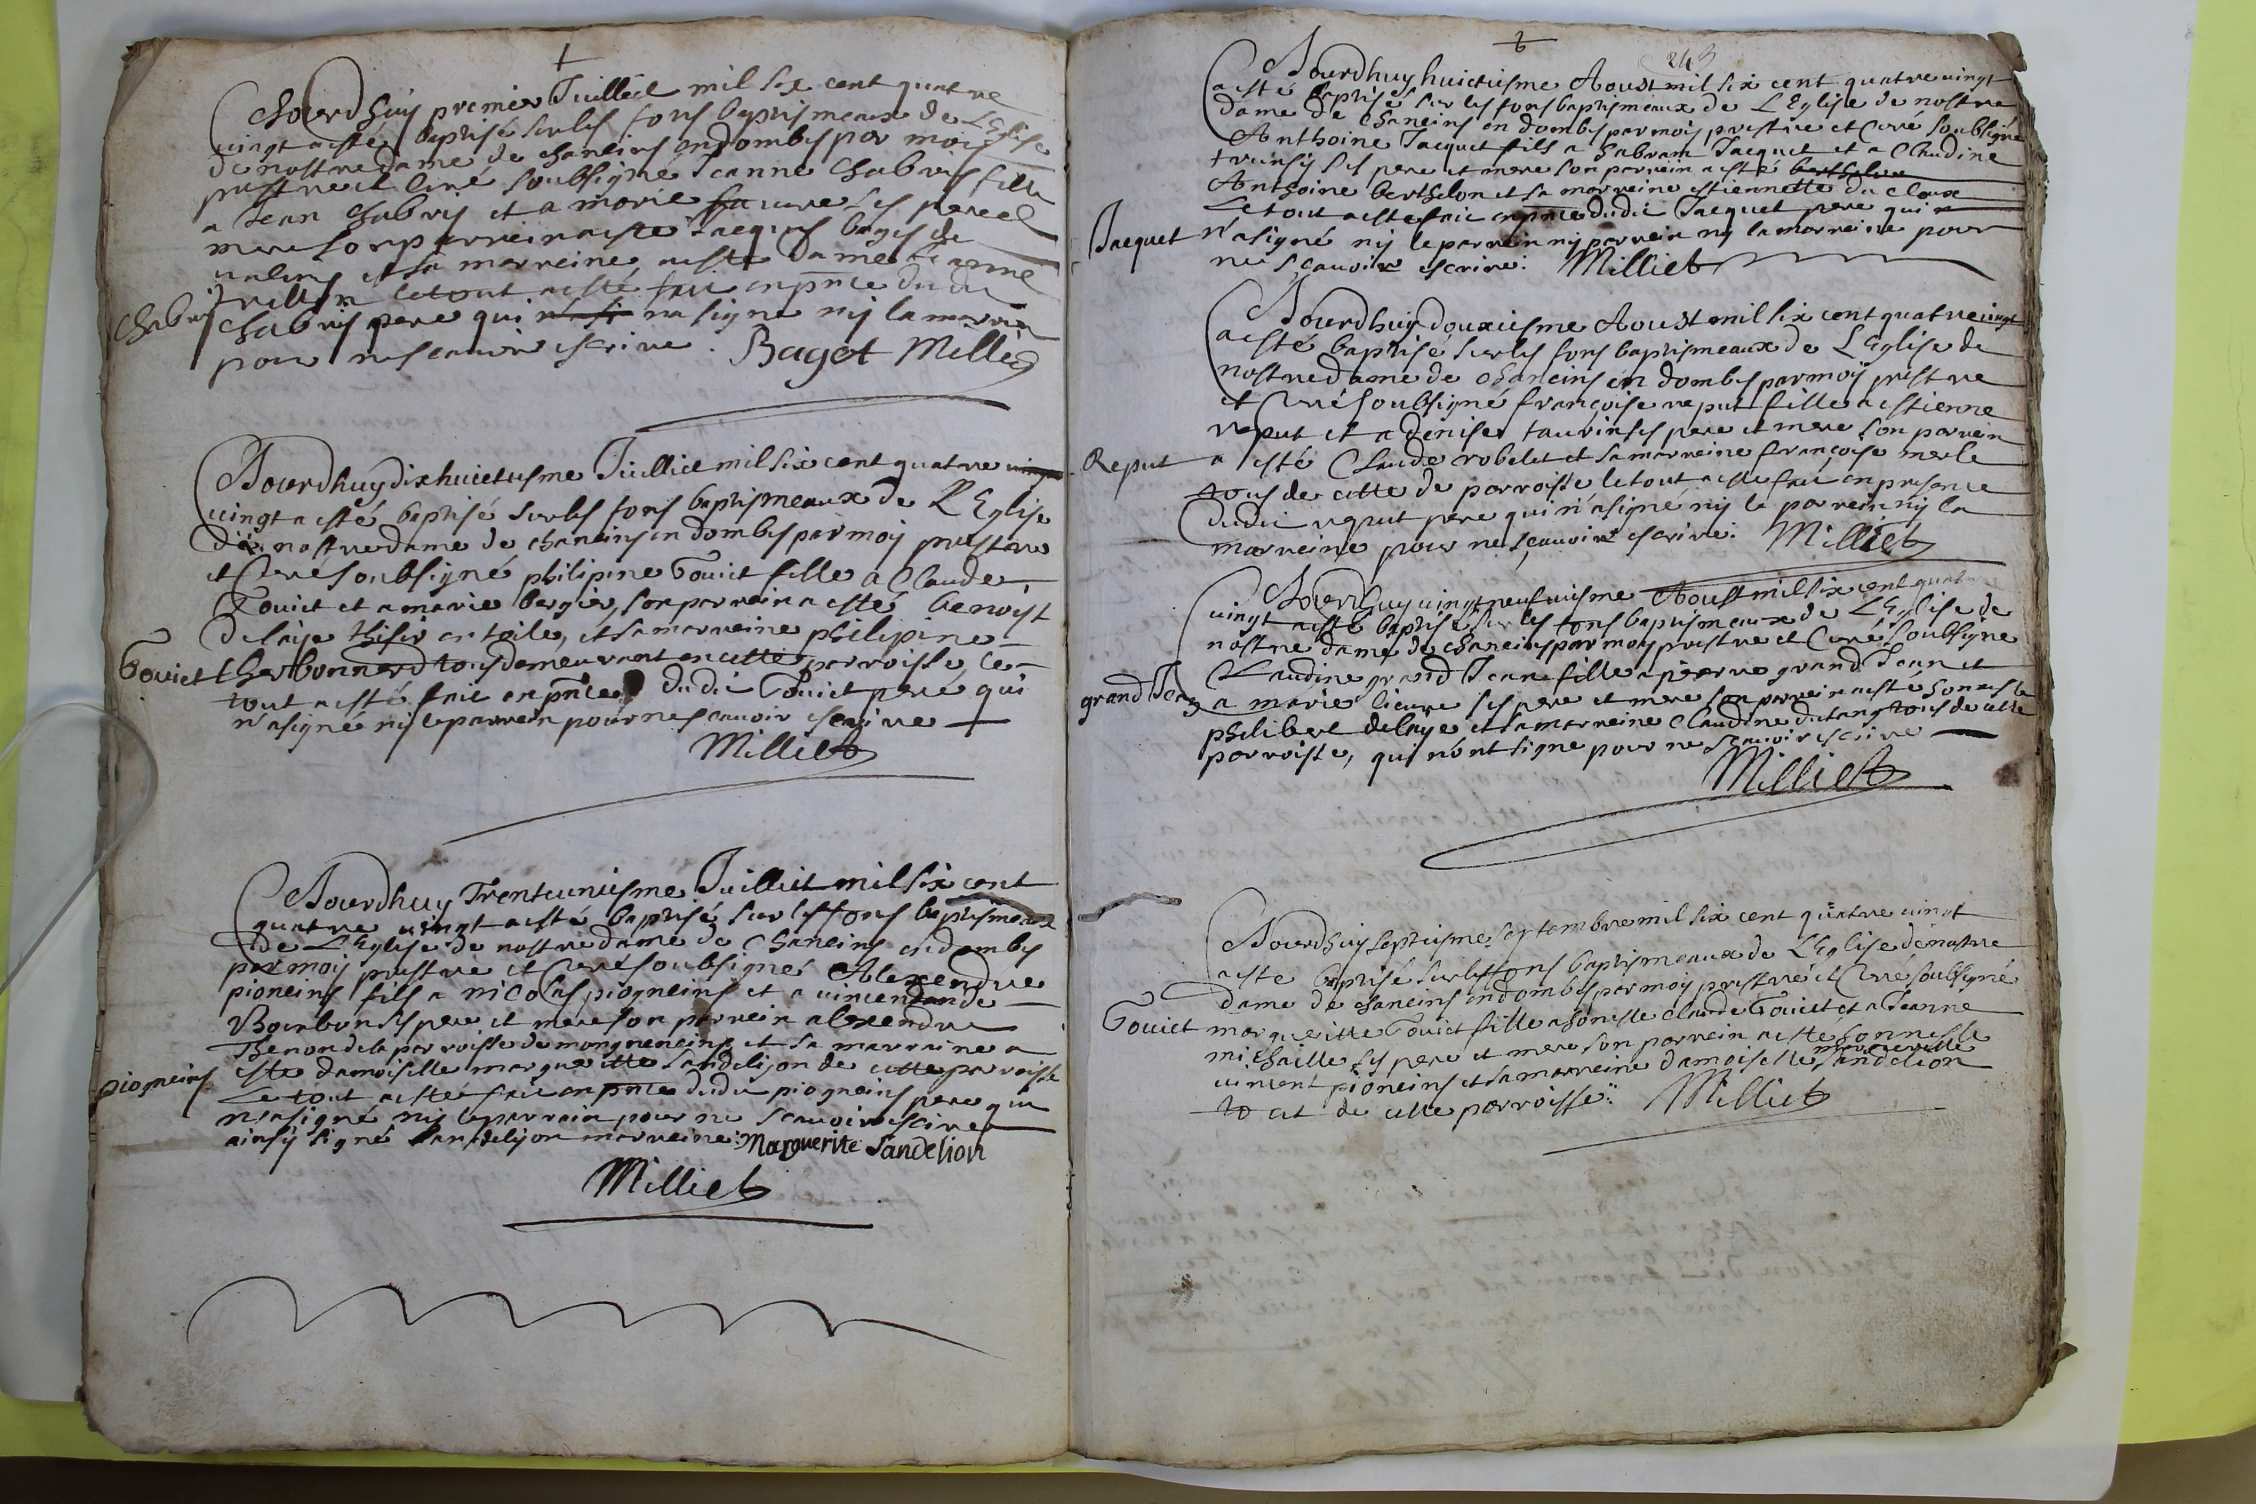 Jourdhuy premier Juillet mil six cent quatre
vingt a esté baptisé sur les fons baptismeaux de L'Eglise
de nostre dame de chaneins en dombes par moij
prestre et Curé soubsigné Jeanne Chabris fille
a Jean Chabris et a marie sa ses pere et
mere son parrein a esté Jacques bages de
et sa marreine a esté dame Jeanne
le tout a esté fait en pnce dudit
Chabris
chabris pere qui n'a signe nij la marreine
pour ne scavoir escrire. Bagot Milliet
Jourdhuy dix huictiesme Juilliet mil six cent quatre vingt
vingt a esté baptisé sur les fons baptismeaux de L'Eglise
de nostre dame de chaneins en dombes par moij prestre
et Curé soubsigné philipine Gouiet fille a Claude
Gouiet et a marie bergier, son parrein a esté benoist
delaije thisir en toile, et sa marreine philipine
Gouiet
Charbonnerd tous demeurant en cette parroisse, le
tout a esté fait en pnce dudit Gouiet pere qui
n'a signé nij le parrein pour ne scavoir escrire
Milliet
Jourdhuy Trenteuniesme Juilliet mil six cent
quatre vingt a esté baptisé sur les fons baptismeaux
de L'Eglise de nostre dame de Chaneins en dombes
par moij prestre et Curé soubsigné Alexendre
pioneins fils a nicolas piogneins et a vincende
Bourbon ses pere et mere son parrein alexendre
Thenon de la parroisse de mongneneins et sa marraine a
esté damoiselle margueritte sandelijon de cette parroisse
piogneins
Le tout a esté fait en pnce dudit piogneins pere qui
n'a signé nij le parrain pour ne scavoir escrire
ainsij signé sandelijon marreine: Marguerite Sandelion
Milliet
243
Jourdhuy huictiesme Aoust mil six cent quatre vingt
a esté baptisé sur les fons baptismeaux de L'Eglise de nostre
dame de chaneins en dombes par moij prestre et Curé soubsigne
Anthoine Jacquet fils a habram Jacquet et a Claudine
ses pere et mere son parrein a esté berthelon
Anthoine berthelon et sa marreine estiennette du Cloux
Le tout a esté fait en pnce dudit Jacquet pere qui
Jacquet
n'a signé nij le parrein nij parrein nij la marreine pour
ne scavoir escrire. Milliet
Jourdhuy douxiesme Aoust mil six cent quatre vingt
a esté baptisé sur les fons baptismeaux de L'Eglise de
nostre dame de chaneins en dombes par moij prestre
et Curé soubsigné françoise reput fille a estienne
reput et a denise taurin ses pere et mere son parrein
Reput
a esté Claude robelet et sa marreine françoise merle
tous de cette de parroisse le tout a esté fait en presence
dudit reput pere qui n'a signé nij le parrein nij la
marreine pour ne sçauoir escrire. Milliet
Jourdhuy vingt neufuiesme Aoust mil six cent quatre
vingt a esté baptisé sur les fons baptismeaux de L'Eglise de
nostre dame de chaneins par moij prestre et Curé soubsigne
Claudine grand Jean fille a pierre grand Jean et
grand Jean
a marie lieure ses pere et mere son parrein a esté honeste
philibert delaye et sa marreine Claudine dutang tous de cette
parroisse, qui n'ont signe pour ne scauoir escrire
Milliet
Jourdhuy septiesme septembre mil six cent quatre vingt
a esté baptisé sur les fons baptismeaux de L'Eglise de nostre
dame de chaneins en dombes par moij prestre et Curé soubsigné
Gouiet
marguerite Gouiet fille a honeste Claude Gouiet et a Jeanne
michaille ses pere et mere son parrein a esté honneste
marguerite
vincent pioneins et sa marreine damoiselle sandelion
de cette parroisse. Milliet